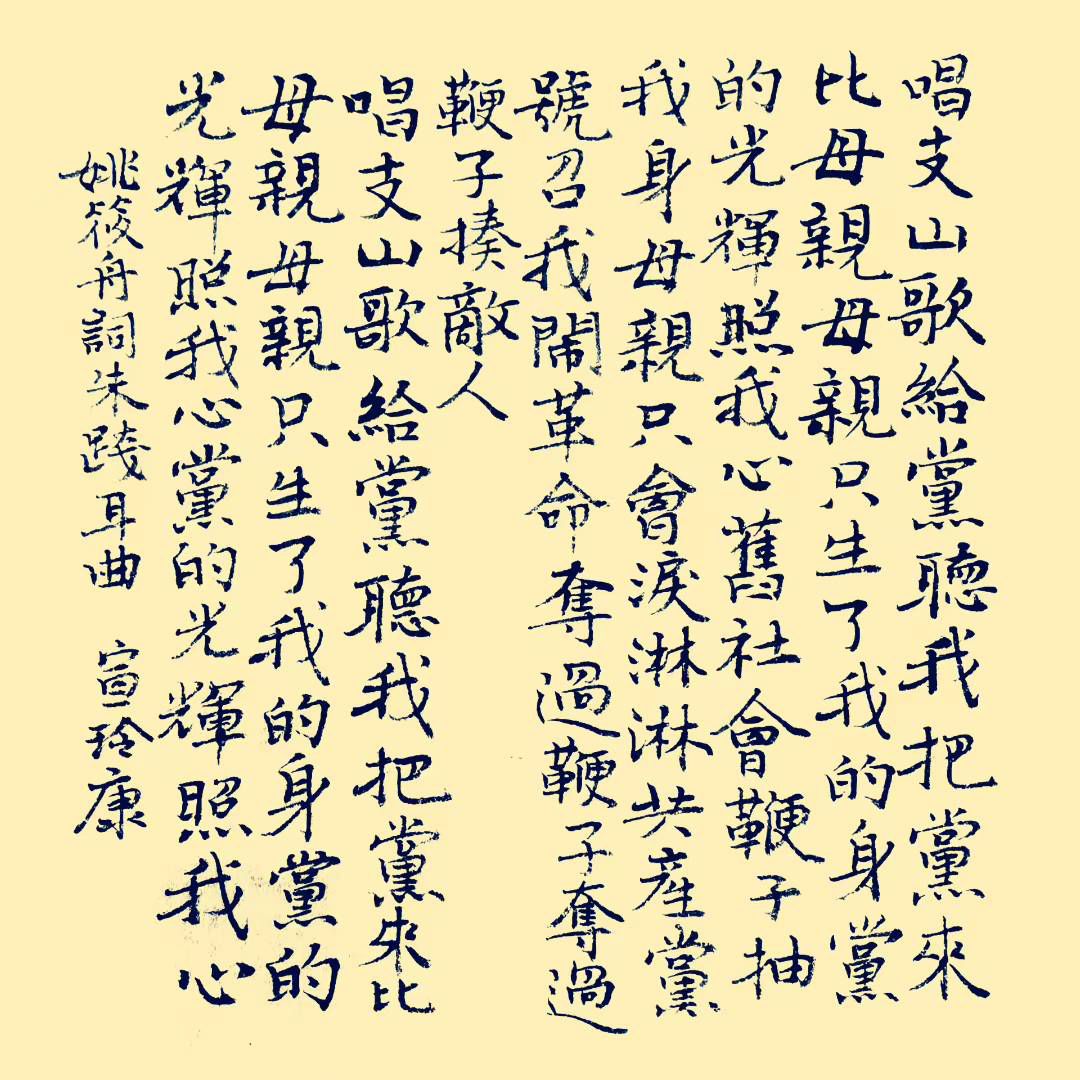 唱支山歌給黨聽我把黨來
比母親母親只生了我的身黨
的光輝照我心舊社會鞭子抽
我身母親只會淚淋淋共產黨
號召我鬧革命奪過鞭子奪過
鞭子揍敵人
唱支山歌給黨聽我把黨來比
母親母親只生了我的身黨的
光輝照我心黨的光輝照我心
姚筱舟詞朱踐耳曲 宣玲康